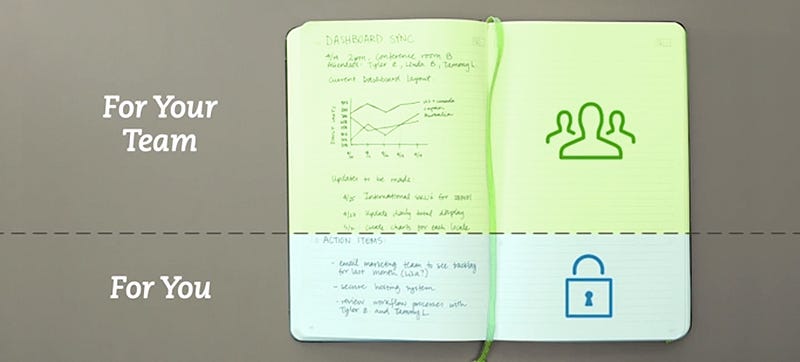 For Your
Team
DASHBOARD SYNC
2pm, Conference room B
Attendees: Tyler B, Linda B, Tammy L
Current Dashboard layout
US + Canada
Japan
Australia
Updates to be made:
4/25 International for
4/27 Update daily total display
charts for each locale
For You
ACTION ITEMS:
- email marketing team to see tracking
for last month (Lisa?)
- secure hosting system
- review workflow processes with
Tyler B and Tammy L